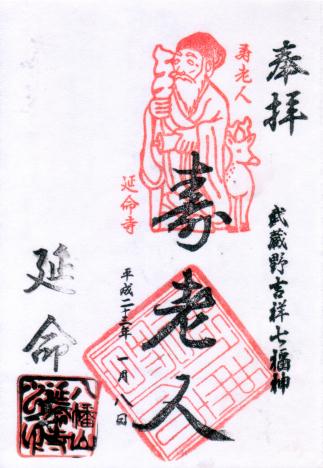 奉拝
武蔵野吉祥七福神
寿老人
壽老人
平成二十三年一月八日
延命寺
延命
八幡山